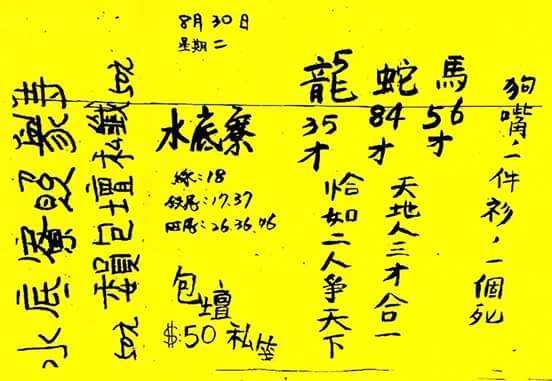 8月30日
星期二
狗嘴,一件衫,一個死
馬
56
才
蛇
84
才
天地人三才合一
龍5
35
才
恰如二人爭天下
水底寮
緣:18
銨尾:17.37
旺尾:26.36.46
包壇
$:50 私坐
包壇私
水底寮